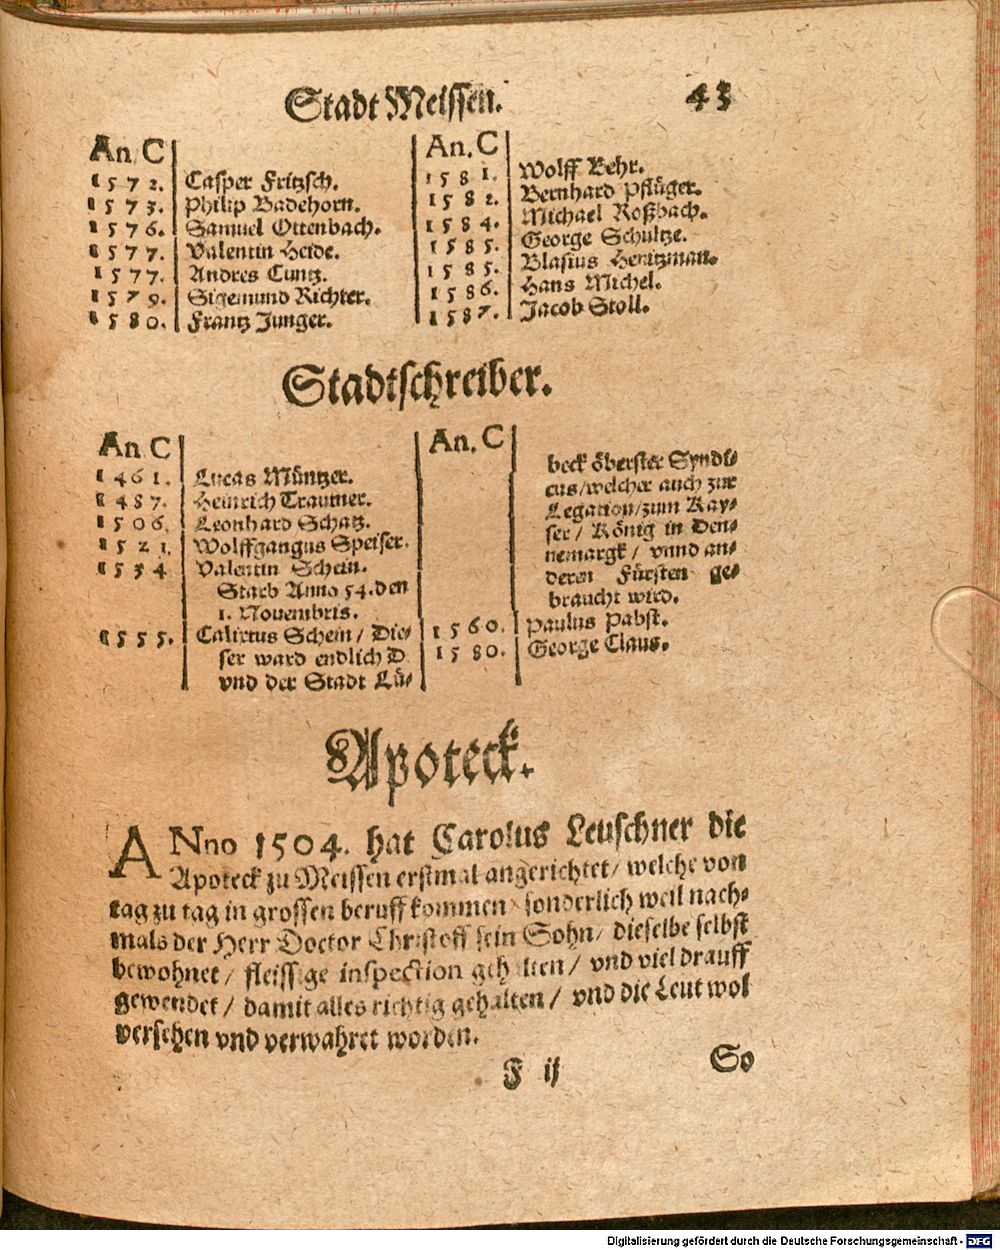 Stadt Meissen. 43
An. C
1572. Casper Fritzsch.
1573. Philip Badehorn.
1576. Samuel Ottenbach.
1577. Valentin Heide.
1577. Andres Cuntz.
1579. Sigemund Richter.
1580. Frantz Junger.
An. C
1581. Wolff Behr.
1582. Bernhard Pflüger.
1584. Michael Roßbach.
1585. George Schultze.
1585. Blasius Hentzman.
1586. Hans Michel.
1587. Jacob Stoll.
Stadtschreiber.
An. C
1461. Lucas Müntzer.
1487. Heinrich Traumer.
1506. Leonhard Schatz.
1521. Wolffgangus Speiser.
1534. Valentin Schein.
Starb Anno 54. den
1. Novembris.
1555. Calixtus Schein / Die-
ser ward endlich D
vnd der Stadt Lü-
An. C
beck öberster Syndi-
cus / welcher auch zur
Legation / zum Kay-
ser / König in Den-
nemargk / vnnd an-
deren Fürsten ge-
braucht wird.
1560. Paulus Pabst.
1580. George Claus.
Apoteck.
ANno 1504. hat Carolus Leuschner die
Apoteck zu Meissen erstmal angerichtet / welche von
tag zu tag in grossen beruff kommen / sonderlich weil nach-
mals der Herr Doctor Christoff sein Sohn / dieselbe selbst
bewohnet / fleissige inspection gehalten / vnd viel drauff
gewendet / damit alles richtig gehalten / vnd die Leut wol
versehen vnd verwahret worden.
F ij So
Digitalisierung gefördert durch die Deutsche Forschungsgemeinschaft - DFG